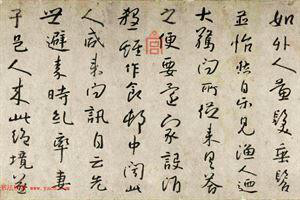 如外人黃髮垂髫
並怡然自樂見漁人迺
大驚問所從來具答
之便要還家設酒
殺雞作食邨中聞此
人咸來問訊自云先
世避秦時亂率妻
子邑人來此絕境